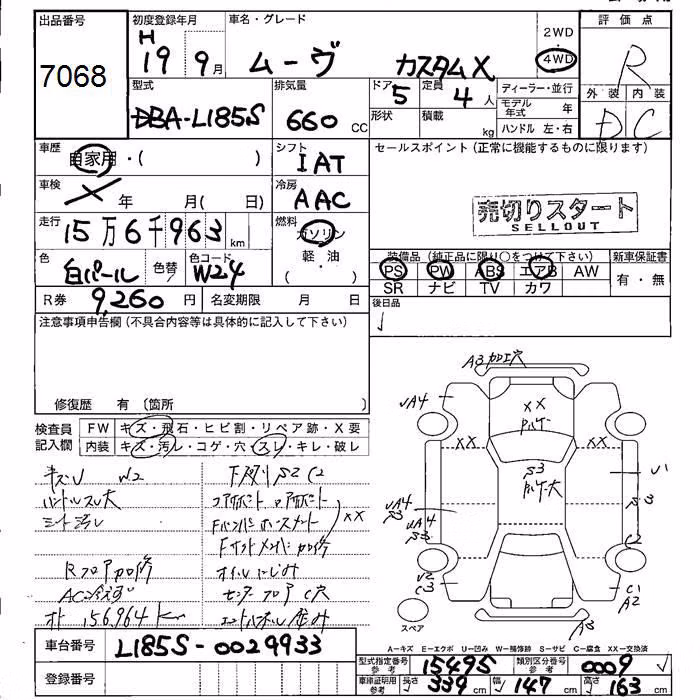 出品番号
7068
初度登録年月
H
19 9月
車名・グレード
ムーヴ カスタムX
2WD
4WD
評価点
R
外装 内装
D C
型式
DBA-L185S
排気量
660 CC
ドア
5
定員
4人
形状
積載
kg
ディーラー・並行
モデル年式 年
ハンドル 左・右
車歴
自家用・( )
シフト
IAT
セールスポイント(正常に機能するものに限ります)
売切りスタート
SELLOUT
車検
年 月( 日)
冷房
AAC
走行
15万6千963 km
燃料
ガソリン
軽・油
( )
色
白パール
色替
色コード
W24
装備品(純正品に限り○をつけて下さい)
PS PW ABS エアB AW
SR ナビ TV カワ
新車保証書
有・無
R券 9,260円
名変期限 月 日
後日品
注意事項申告欄(不具合内容等は具体的に記入して下さい)
修復歴 有〔箇所 〕
検査員記入欄
FW キズ・飛石・ヒビ割・リペア跡・X要
内装 キズ・汚レ・コゲ・穴・スレ・キレ・破レ
キズU W2
ハンドルスレ大
シート汚レ
Rフロア加修
メーター 156,964km
下廻りS2 C2
XX
オイルにじみ
センターフロア C穴
A3 加工穴
XX
XX
XX
S3
U1
S3
C2
C1
A2
UA4
UA4
S3
UA4
S3
U2
C3
A3
スペア
A-キズ E-エクボ U-凹み W-補修跡 S-サビ C-腐食 XX-交換済
車台番号
L185S-0029933
登録番号
型式指定番号 参考
15495
類別区分番号 参考
0009
車庫証明用 参考
長さ 339 cm
幅 147 cm
高さ 163 cm